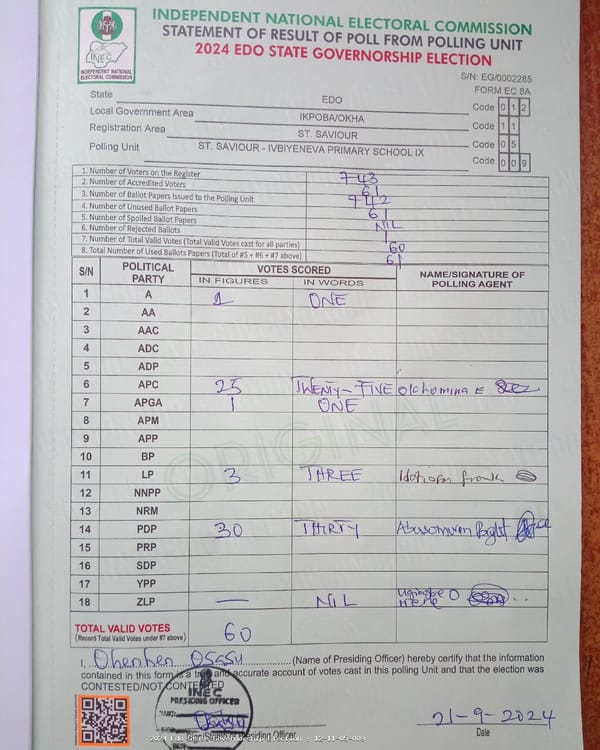 INDEPENDENT NATIONAL ELECTORAL COMMISSION
STATEMENT OF RESULT OF POLL FROM POLLING UNIT
2024 EDO STATE GOVERNORSHIP ELECTION
INEC
INDEPENDENT NATIONAL
ELECTORAL COMMISSION
S/N: EG/0002285
FORM EC 8A
State EDO Code 0 1 2
Local Government Area IKPOBA/OKHA Code 1 1
Registration Area ST. SAVIOUR Code 0 5
Polling Unit ST. SAVIOUR - IVBIYENEVA PRIMARY SCHOOL IX Code 0 0 9
1. Number of Voters on the Register 743
2. Number of Accredited Voters 61
3. Number of Ballot Papers Issued to the Polling Unit 742
4. Number of Unused Ballot Papers 61
5. Number of Spoiled Ballot Papers NIL
6. Number of Rejected Ballots 1
7. Number of Total Valid Votes (Total Valid Votes cast for all parties) 60
8. Total Number of Used Ballots Papers (Total of #5 + #6 + #7 above) 61
S/N POLITICAL PARTY VOTES SCORED NAME/SIGNATURE OF POLLING AGENT
IN FIGURES IN WORDS
1 A 1 ONE
2 AA
3 AAC
4 ADC
5 ADP
6 APC 25 TWENTY-FIVE
7 APGA 1 ONE
8 APM
9 APP
10 BP
11 LP 3 THREE
12 NNPP
13 NRM
14 PDP 30 THIRTY
15 PRP
16 SDP
17 YPP
18 ZLP — NIL
ORIGINAL
TOTAL VALID VOTES 60
(Record Total Valid Votes under #7 above)
I, Ohenhen (Name of Presiding Officer) hereby certify that the information
contained in this form is a true and accurate account of votes cast in this polling Unit and that the election was
CONTESTED/NOT CONTESTED
INEC
PRESIDING OFFICER
Presiding Officer
21-9-2024
Date